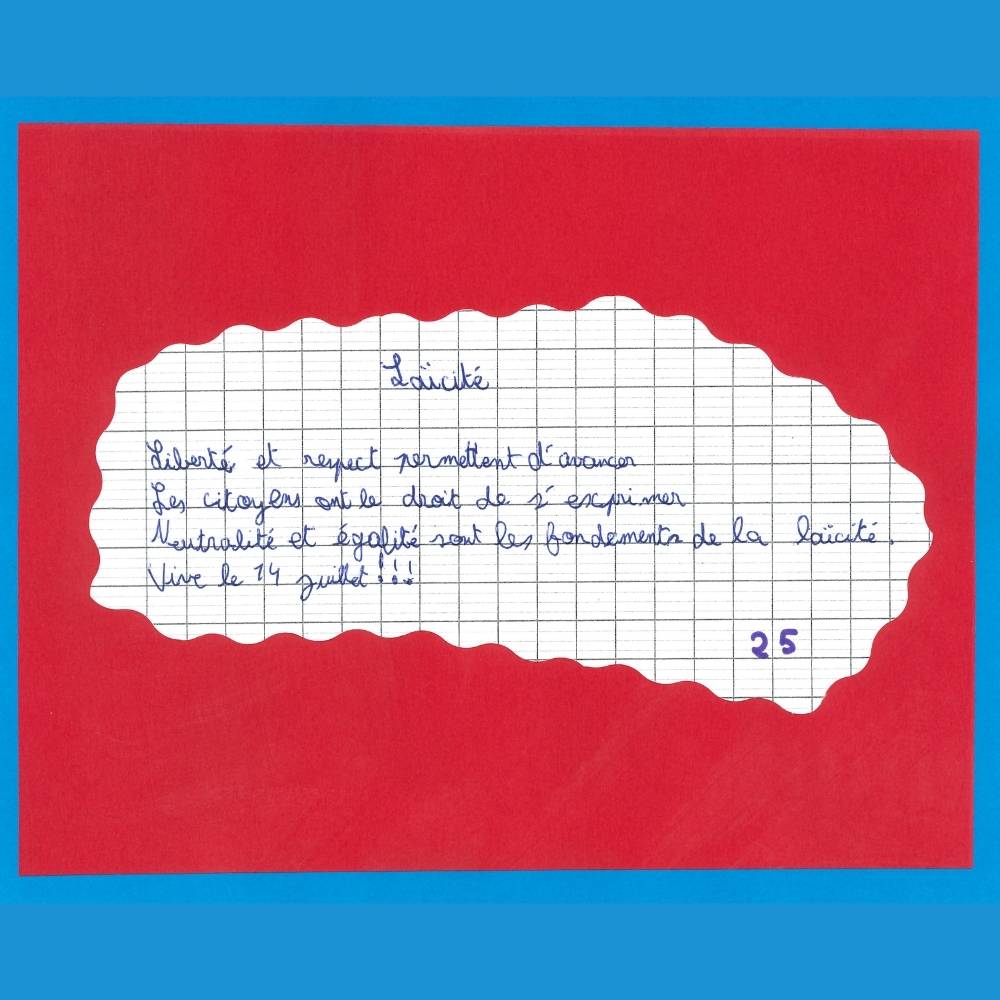 Laïcité
Liberté et respect permettent d'avancer
Les citoyens ont le droit de s'exprimer
Neutralité et égalité sont les fondements de la laïcité.
Vive le 14 juillet !!!
25